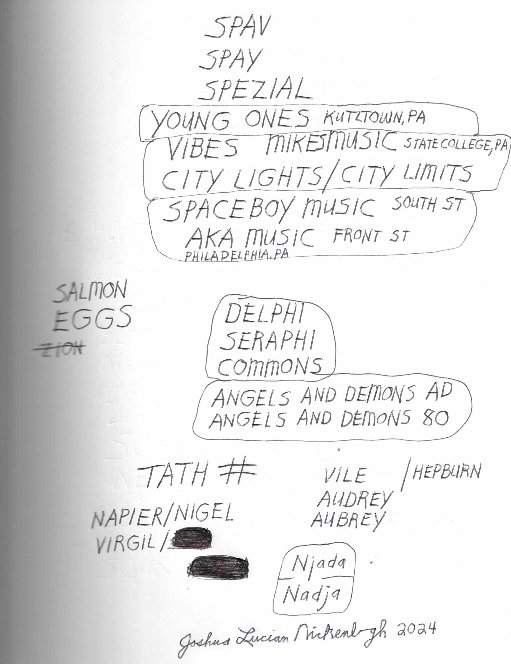 SPAV
SPAY
SPEZIAL
YOUNG ONES KUTZTOWN, PA
VIBES MIKESMUSIC STATE COLLEGE, PA
CITY LIGHTS/CITY LIMITS
SPACEBOY MUSIC SOUTH ST
AKA MUSIC FRONT ST
PHILADELPHIA, PA
SALMON
EGGS
ZION
DELPHI
SERAPHI
COMMONS
ANGELS AND DEMONS AD
ANGELS AND DEMONS 80
TATH #
NAPIER/NIGEL
VIRGIL/
VILE /HEPBURN
AUDREY
AUBREY
Njada
Nadja
Joshua Lucian 2024